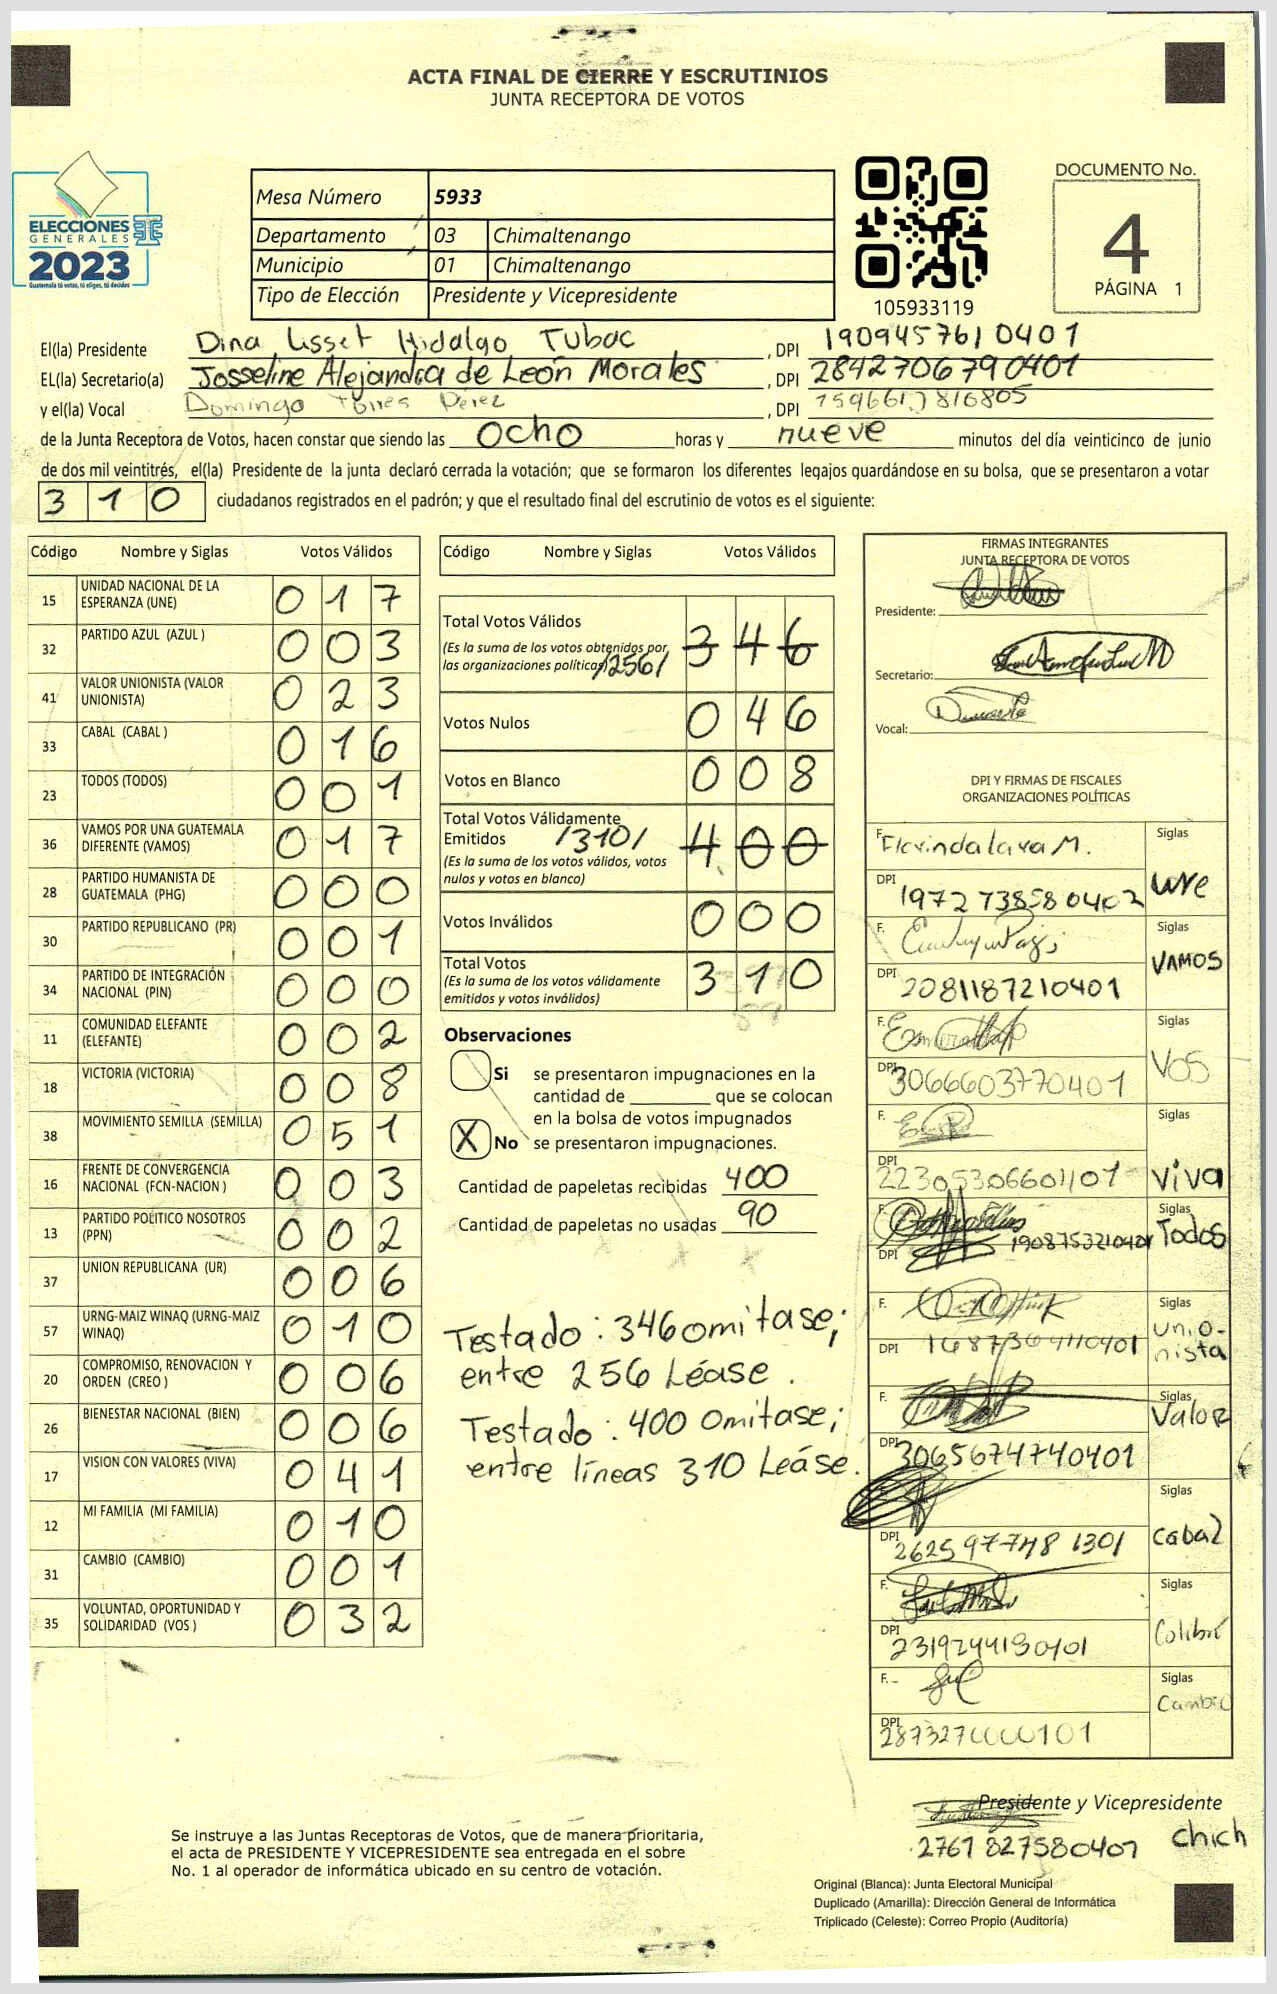 ACTA FINAL DE CIERRE Y ESCRUTINIOS
JUNTA RECEPTORA DE VOTOS
ELECCIONES
GENERALES
2023
Guatemala tú votas, tú eliges, tú decides
Mesa Número 5933
Departamento 03 Chimaltenango
Municipio 01 Chimaltenango
Tipo de Elección Presidente y Vicepresidente
105933119
DOCUMENTO No.
4
PÁGINA 1
El(la) Presidente Dina Lisset Hidalgo Tubac, DPI 1909457610401
EL(la) Secretario(a) Josseline Alejandra de León Morales, DPI 2842706790401
y el(la) Vocal Domingo Torres Pérez, DPI
de la Junta Receptora de Votos, hacen constar que siendo las ocho horas y nueve minutos del día veinticinco de junio
de dos mil veintitrés, el(la) Presidente de la junta declaró cerrada la votación; que se formaron los diferentes legajos guardándose en su bolsa, que se presentaron a votar
310 ciudadanos registrados en el padrón; y que el resultado final del escrutinio de votos es el siguiente:
Código Nombre y Siglas Votos Válidos
15 UNIDAD NACIONAL DE LA ESPERANZA (UNE) 017
32 PARTIDO AZUL (AZUL ) 003
41 VALOR UNIONISTA (VALOR UNIONISTA) 023
33 CABAL (CABAL ) 016
23 TODOS (TODOS) 001
36 VAMOS POR UNA GUATEMALA DIFERENTE (VAMOS) 017
28 PARTIDO HUMANISTA DE GUATEMALA (PHG) 000
30 PARTIDO REPUBLICANO (PR) 001
34 PARTIDO DE INTEGRACIÓN NACIONAL (PIN) 000
11 COMUNIDAD ELEFANTE (ELEFANTE) 002
18 VICTORIA (VICTORIA) 008
38 MOVIMIENTO SEMILLA (SEMILLA) 051
16 FRENTE DE CONVERGENCIA NACIONAL (FCN-NACION ) 003
13 PARTIDO POLITICO NOSOTROS (PPN) 002
37 UNION REPUBLICANA (UR) 006
57 URNG-MAIZ WINAQ (URNG-MAIZ WINAQ) 010
20 COMPROMISO, RENOVACION Y ORDEN (CREO ) 006
26 BIENESTAR NACIONAL (BIEN) 006
17 VISION CON VALORES (VIVA) 041
12 MI FAMILIA (MI FAMILIA) 010
31 CAMBIO (CAMBIO) 001
35 VOLUNTAD, OPORTUNIDAD Y SOLIDARIDAD (VOS ) 032
Código Nombre y Siglas Votos Válidos
Total Votos Válidos 346
(Es la suma de los votos obtenidos por
las organizaciones políticas) /256/
Votos Nulos 046
Votos en Blanco 008
Total Votos Válidamente
Emitidos /310/ 400
(Es la suma de los votos válidos, votos
nulos y votos en blanco)
Votos Inválidos 000
Total Votos 310
(Es la suma de los votos válidamente
emitidos y votos inválidos)
Observaciones
Si se presentaron impugnaciones en la
cantidad de ________ que se colocan
en la bolsa de votos impugnados
X No se presentaron impugnaciones.
Cantidad de papeletas recibidas 400
Cantidad de papeletas no usadas 90
Testado : 346 omitase;
entre 256 Léase.
Testado : 400 omitase;
entre líneas 310 Leáse.
FIRMAS INTEGRANTES
JUNTA RECEPTORA DE VOTOS
Presidente:
Secretario:
Vocal:
DPI Y FIRMAS DE FISCALES
ORGANIZACIONES POLÍTICAS
F. Florinda lara M. Siglas
DPI 1972 73858 0402 une
F. Siglas
DPI 2081187210401 VAMOS
F. Siglas
DPI 3066603770401 VOS
F. Siglas
DPI 2230530660 1101 Viva
F. Siglas
DPI 1908753210401 Todos
F. Siglas
DPI Unio-
nista
F. Siglas
DPI 3065674740401 Valor
Siglas
DPI 2625 97748 1301 cabal
F. Siglas
DPI Colibrí
F. Siglas
DPI Cambio
Presidente y Vicepresidente
2761 827580401 chich
Se instruye a las Juntas Receptoras de Votos, que de manera prioritaria,
el acta de PRESIDENTE Y VICEPRESIDENTE sea entregada en el sobre
No. 1 al operador de informática ubicado en su centro de votación.
Original (Blanca): Junta Electoral Municipal
Duplicado (Amarilla): Dirección General de Informática
Triplicado (Celeste): Correo Propio (Auditoría)